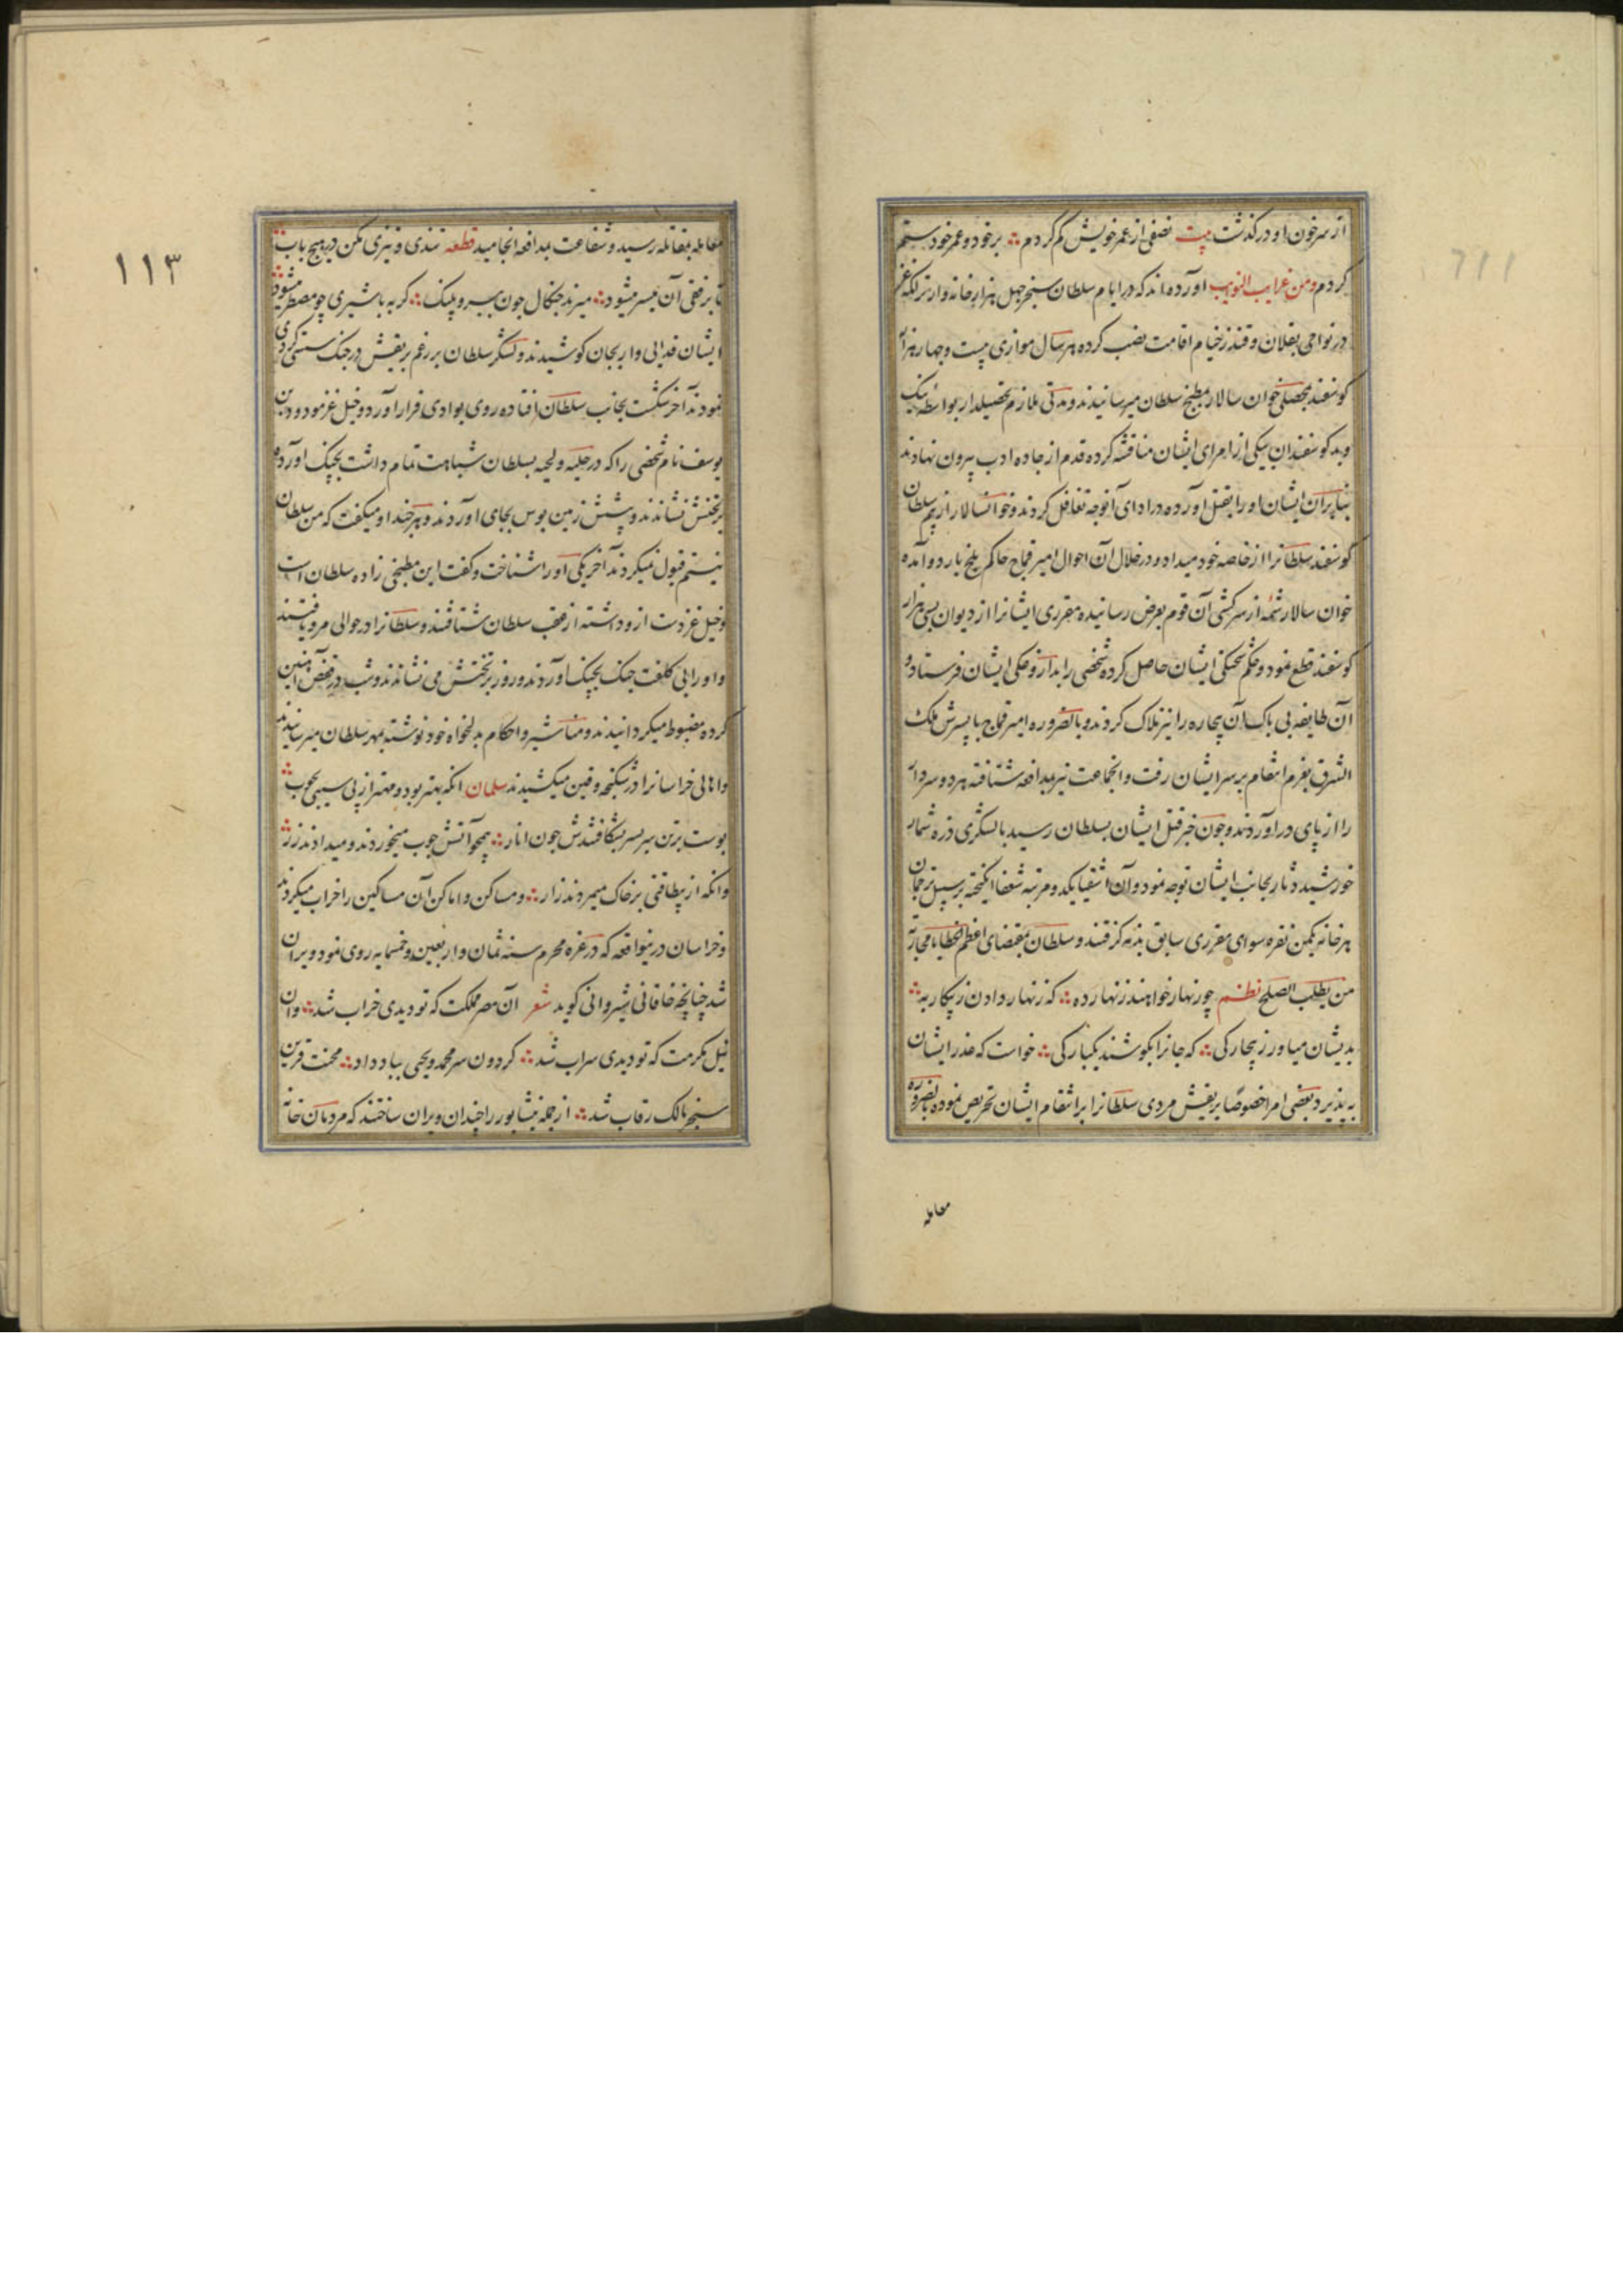 از سر خون او در کذشت بیت نصفی از عمر خویش کم کردم ∴ بر خود و عمر خود ستم
کردم ومن غرایب النوایب اورده اند که در ایام سلطان سنجر چهل هزار خانه وار ترکمه غز
در نواحی بقلان و قندز خیام اقامت نصب کرده هر سال موازی بیست وچهار هزار
کوسفند بمحصلی خوان سالار بمطبخ سلطان میرسانیدند ومدتی ملازم تحصیلدار بواسطه نیک
وبد کوسفندان بیکی از امرای ایشان مناقشه کرده قدم از جاده ادب بیرون نهادند
بنابران ایشان اورا بقتل اورده در ادای آنوجه تغافل کردند وخوانسالار از بیم سلطان
کوسفند سلطانرا از خاصه خود میداد و در خلال آن احوال امیر قماج حاکم بلخ باردو آمده
خوان سالار شمه از سرکشی آن قوم بعرض رسانیده مقرری ایشانرا از دیوان بسی هزار
کوسفند قطع نمود وحکم شحنکی ایشان حاصل کرده شخصی را بداروغکی ایشان فرستاد و
آن طایفه بی باک آن بیچاره را نیز هلاک کردند وبالضروره امیر قماج با پسرش ملک
الشرق بعزم انتقام بر سر ایشان رفت وانجماعت نیز بمدافعه شتافته هر دو سردار
را از پای در اوردند وجون خبر قتل ایشان بسلطان رسید با لشکری ذره شمار
خورشید دثار بجانب ایشان توجه نمود وآن اشقیا یکدو مرتبه شفعا انکیخته برسبیل ترجمان
هر خانه یکمن نقره سوای مقرری سابق بذمه کرفتند وسلطان بمقتضای اعظم الخطایا محاربة
من یطلب الصلح نظم چو زنهار خواهند زنهار ده ∴ که زنهار دادن ز پیکار به ∴
بدیشان میاور ز بیچارکی ∴ که جانرا بکوشند یکبارکی ∴ خواست که عذر ایشان
به پذیرد بعضی امرا خصوصا بریقش مردی سلطانرا برانتقام ایشان تحریص نموده بالضروره
معامله
١١٣
معامله بمقاتله رسید و شفاعت بمدافعه انجامید قطعه تندی و تیزی مکن در هیچ باب ∴
تا برفقی آن میسر میشود ∴ میزند جنکال جون ببر و پلنک ∴ کربه با شیری چو مضطر میشود ∴
ایشان فدایی وار بجان کوشیدند ولشکر سلطان بر رغم بریقش در جنک سستی کردی
نمودند آخر شکست بجانب سلطان افتاده روی بوادی فرار آورد وخیل غز مودود بن
یوسف نام شخصی را که در حلیه ولحیه بسلطان شباهت تمام داشت بچنک آورده
بر تختش نشاندند و پیشش زمین بوس بجای آوردند وهر چند او میکفت که من سلطان
نیستم قبول نمیکردند آخر یکی اورا شناخت وکفت این مطبخی زاده سلطان است
وخیل غز دست ازو داشته از عقب سلطان شتافتند وسلطانرا در حوالی مرو یافتند
واورا بی کلفت جنک بچنک آوردند وروز بر تختش می نشاندند وشب در قفص آهنین
کرده مضبوط میکردانیدند ومناشیر واحکام بدلخواه خود نوشته بمهر سلطان میرسانیدند
واهالی خراسانرا در شکنجه وقین میکشیدند سلمان انکه بهتر بود و مهتر از پی سیبی بچوب ∴
پوست برتن سربسر بشکافتندش جون انار ∴ همچو آتش چوب میخوردند و میدادند زر ∴
وانکه از بیطاقتی بر خاک میمردند زار ∴ ومساکن واماکن آن مساکین را خراب میکردند
وخراسان درینواقعه که در غره محرم سنه ثمان واربعین وخمسمایه روی نمود ویران
شد چنانچه خاقانی شیروانی کوید شعر آن مصر مملکت که تو دیدی خراب شد ∴ وان
نیل مکرمت که تو دیدی سراب شد ∴ کردون سر محمد ویحیی بباد داد ∴ محنت قرین
سنجر مالک رقاب شد ∴ ازجمله نیشابور را چندان ویران ساختند که مردمان خانه